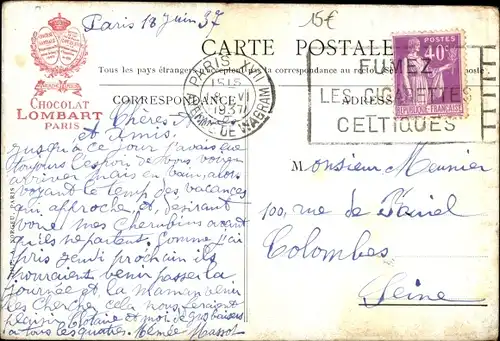 Paris 18 Juin 37
15€
CARTE POSTALE
Tous les pays étrangers
la correspondance au recto
CHOCOLAT
LOMBART
PARIS
CORRESPONDANCE
ADRESSE
PARIS XVII
1515
18 VI
1937
AV. DE WAGRAM
POSTES
40c
REPUBLIQUE FRANÇAISE
FUMEZ
LES CIGARETTES
CELTIQUES
Chères
et Amis.
Jusqu'à ce jour j'avais eu
toujours l'espoir de vous voir
arriver mais en vain, alors
voyant le temps des vacances
qui approche et, désirant
voir mes Chérubins avant
qu'ils ne partent. Comme j'ai
pris Jeudi prochain ils
pourraient venir passer la
journée et la Maman venir
les chercher cela nous feraient
plaisir et moi de gros baisers
à tous les quatre. Aimée Massot
Monsieur Meunier
100, rue de
Colombes
Seine
PARIS